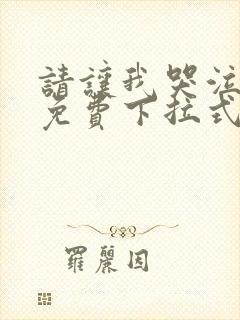 請讓我哭泣
免費下拉式
羅麗因